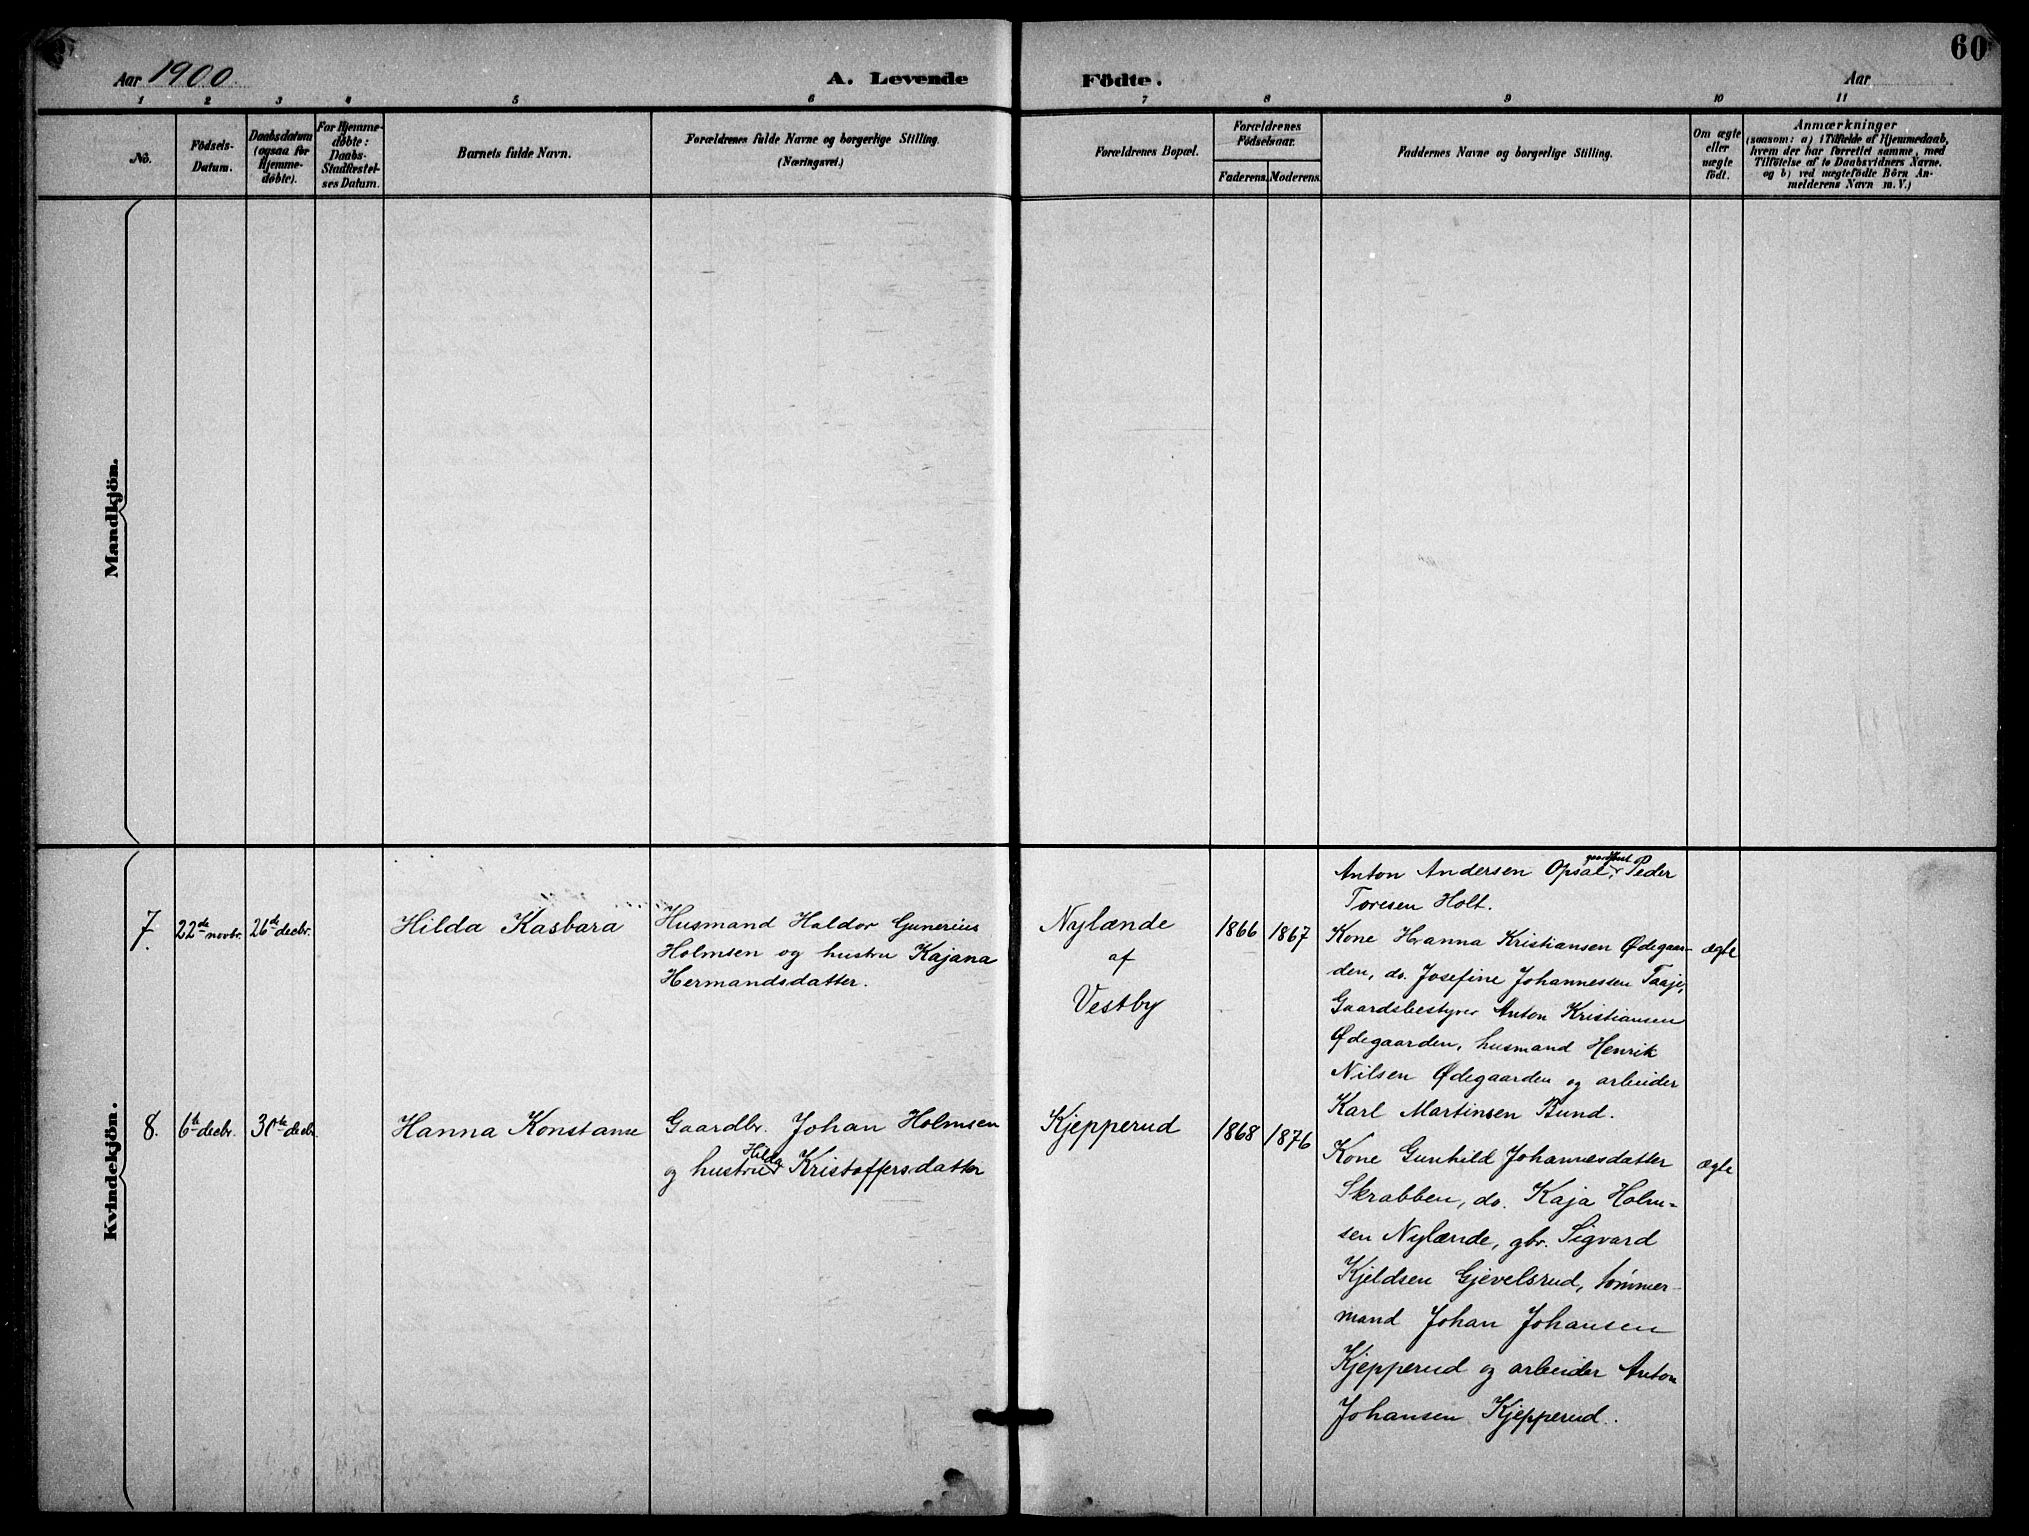 60
Aar 1900.
A. Levende Födte.
Aar
1 2 3 4 5 6 7 8 9 10 11
No.
Födsels-
Datum.
Daabsdatum
(ogsaa for
Hjemme-
døbte).
For Hjemme-
døbte:
Daabs-
Stadfæstel-
ses Datum.
Barnets fulde Navn.
Forældrenes fulde Navne og borgerlige Stilling.
(Næringsvei.)
Forældrenes Bopæl.
Forældrenes
Födselsaar.
Faderens. Moderens.
Faddernes Navne og borgerlige Stilling.
Om ægte
eller
uægte
født.
Anmærkninger
(saasom: a) i Tilfælde af Hjemmedaab,
hvem der har forrettet samme, med
Tilføielse af to Daabsvidners Navne.
og b) ved uægtefödte Börn An-
melderens Navn m. V.)
Mandkjön.
Kvindekjön.
7.
22de novbr.
26de decbr.
Hilda Kasbara
Husmand Haldor Gunerius
Holmsen og hustru Kajana
Hermandsdatter.
Nylænde
af
Vestby
1866
1867
Anton Andersen Opsal, Peder
Toresen Holt.
Kone Hanna Kristiansen Ødegaar-
den, do. Josefine Johannessen Taaje,
Gaardsbestyrer Anton Kristiansen
Ødegaarden, husmand Henrik
Nilsen Ødegaarden og arbeider
Karl Martinsen Bund.
ægte
8.
6te decbr.
30te decbr.
Hanna Konstanse
Gaardbr. Johan Holmsen
og hustru Hilda Kristoffersdatter
Kjepperud
1868
1876
Kone Gunhild Johannesdatter
Skrabben, do. Kaja Holm-
sen Nylænde, gbr. Sigvard
Kjeldsen Gjevelsrud, tømmer-
mand Johan Johansen
Kjepperud og arbeider Anton
Johansen Kjepperud.
ægte